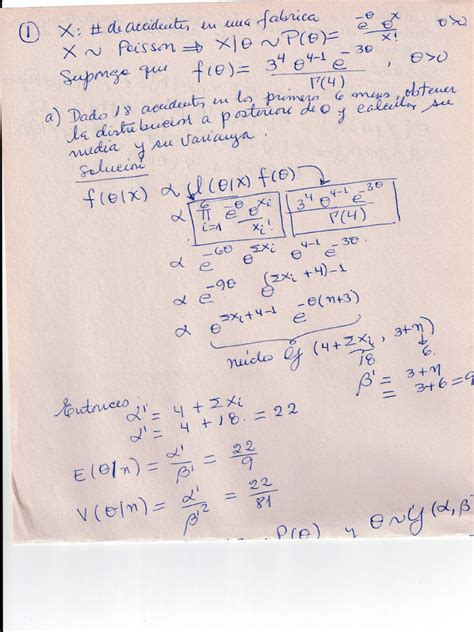 ① X: # de accidentes en una fabrica
X ~ Poisson ⇒ X|θ ~ P(θ) = e^-θ θ^x / x! θ>0
Suponga que f(θ) = 3^4 θ^4-1 e^-3θ / Γ(4), θ>0
a) Dado 18 accidentes en los primeros 6 meses, obtener
la distribucion a posteriori de θ y calcular su
media y su varianza.
Solución
f(θ|x) α l(θ|x) f(θ)
α ∏ i=1 6 e^-θ θ^xi / xi! 3^4 θ^4-1 e^-3θ / Γ(4)
α e^-6θ θ^Σxi θ^4-1 e^-3θ.
α e^-9θ θ^(Σxi+4)-1
α θ^Σxi+4-1 e^-θ(n+3)
núcleo G (4+Σxi, 3+n)
18 6.
β' = 3+n
= 3+6 = 9
Entonces:
α' = 4 + Σxi
α' = 4 + 18. = 22
E(θ|n) = α'/β' = 22/9
V(θ|n) = α'/β'^2 = 22/81
P(θ) y θ~G(α, β